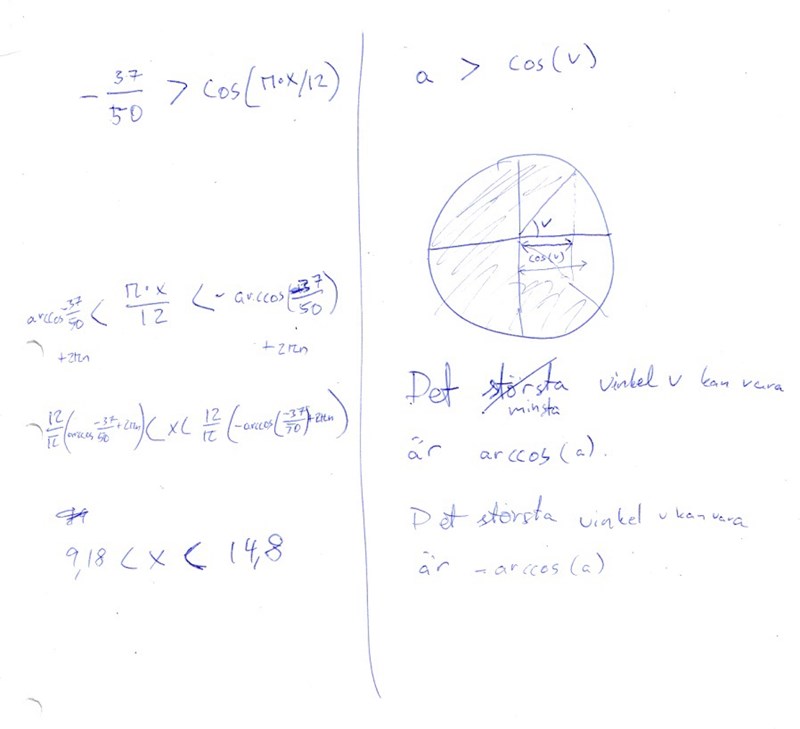 -37/50 > cos(π·x/12)
arccos -37/50 +2πn < π·x/12 < -arccos(-37/50) +2πn
12/π(arccos -37/50 +2πn) < x < 12/π(-arccos(-37/50)+2πn)
9,18 < x < 14,8
a > cos(v)
v
cos(v)
Det största vinkel v kan vara
minsta
är arccos(a).
Det största vinkel v kan vara
är -arccos(a)